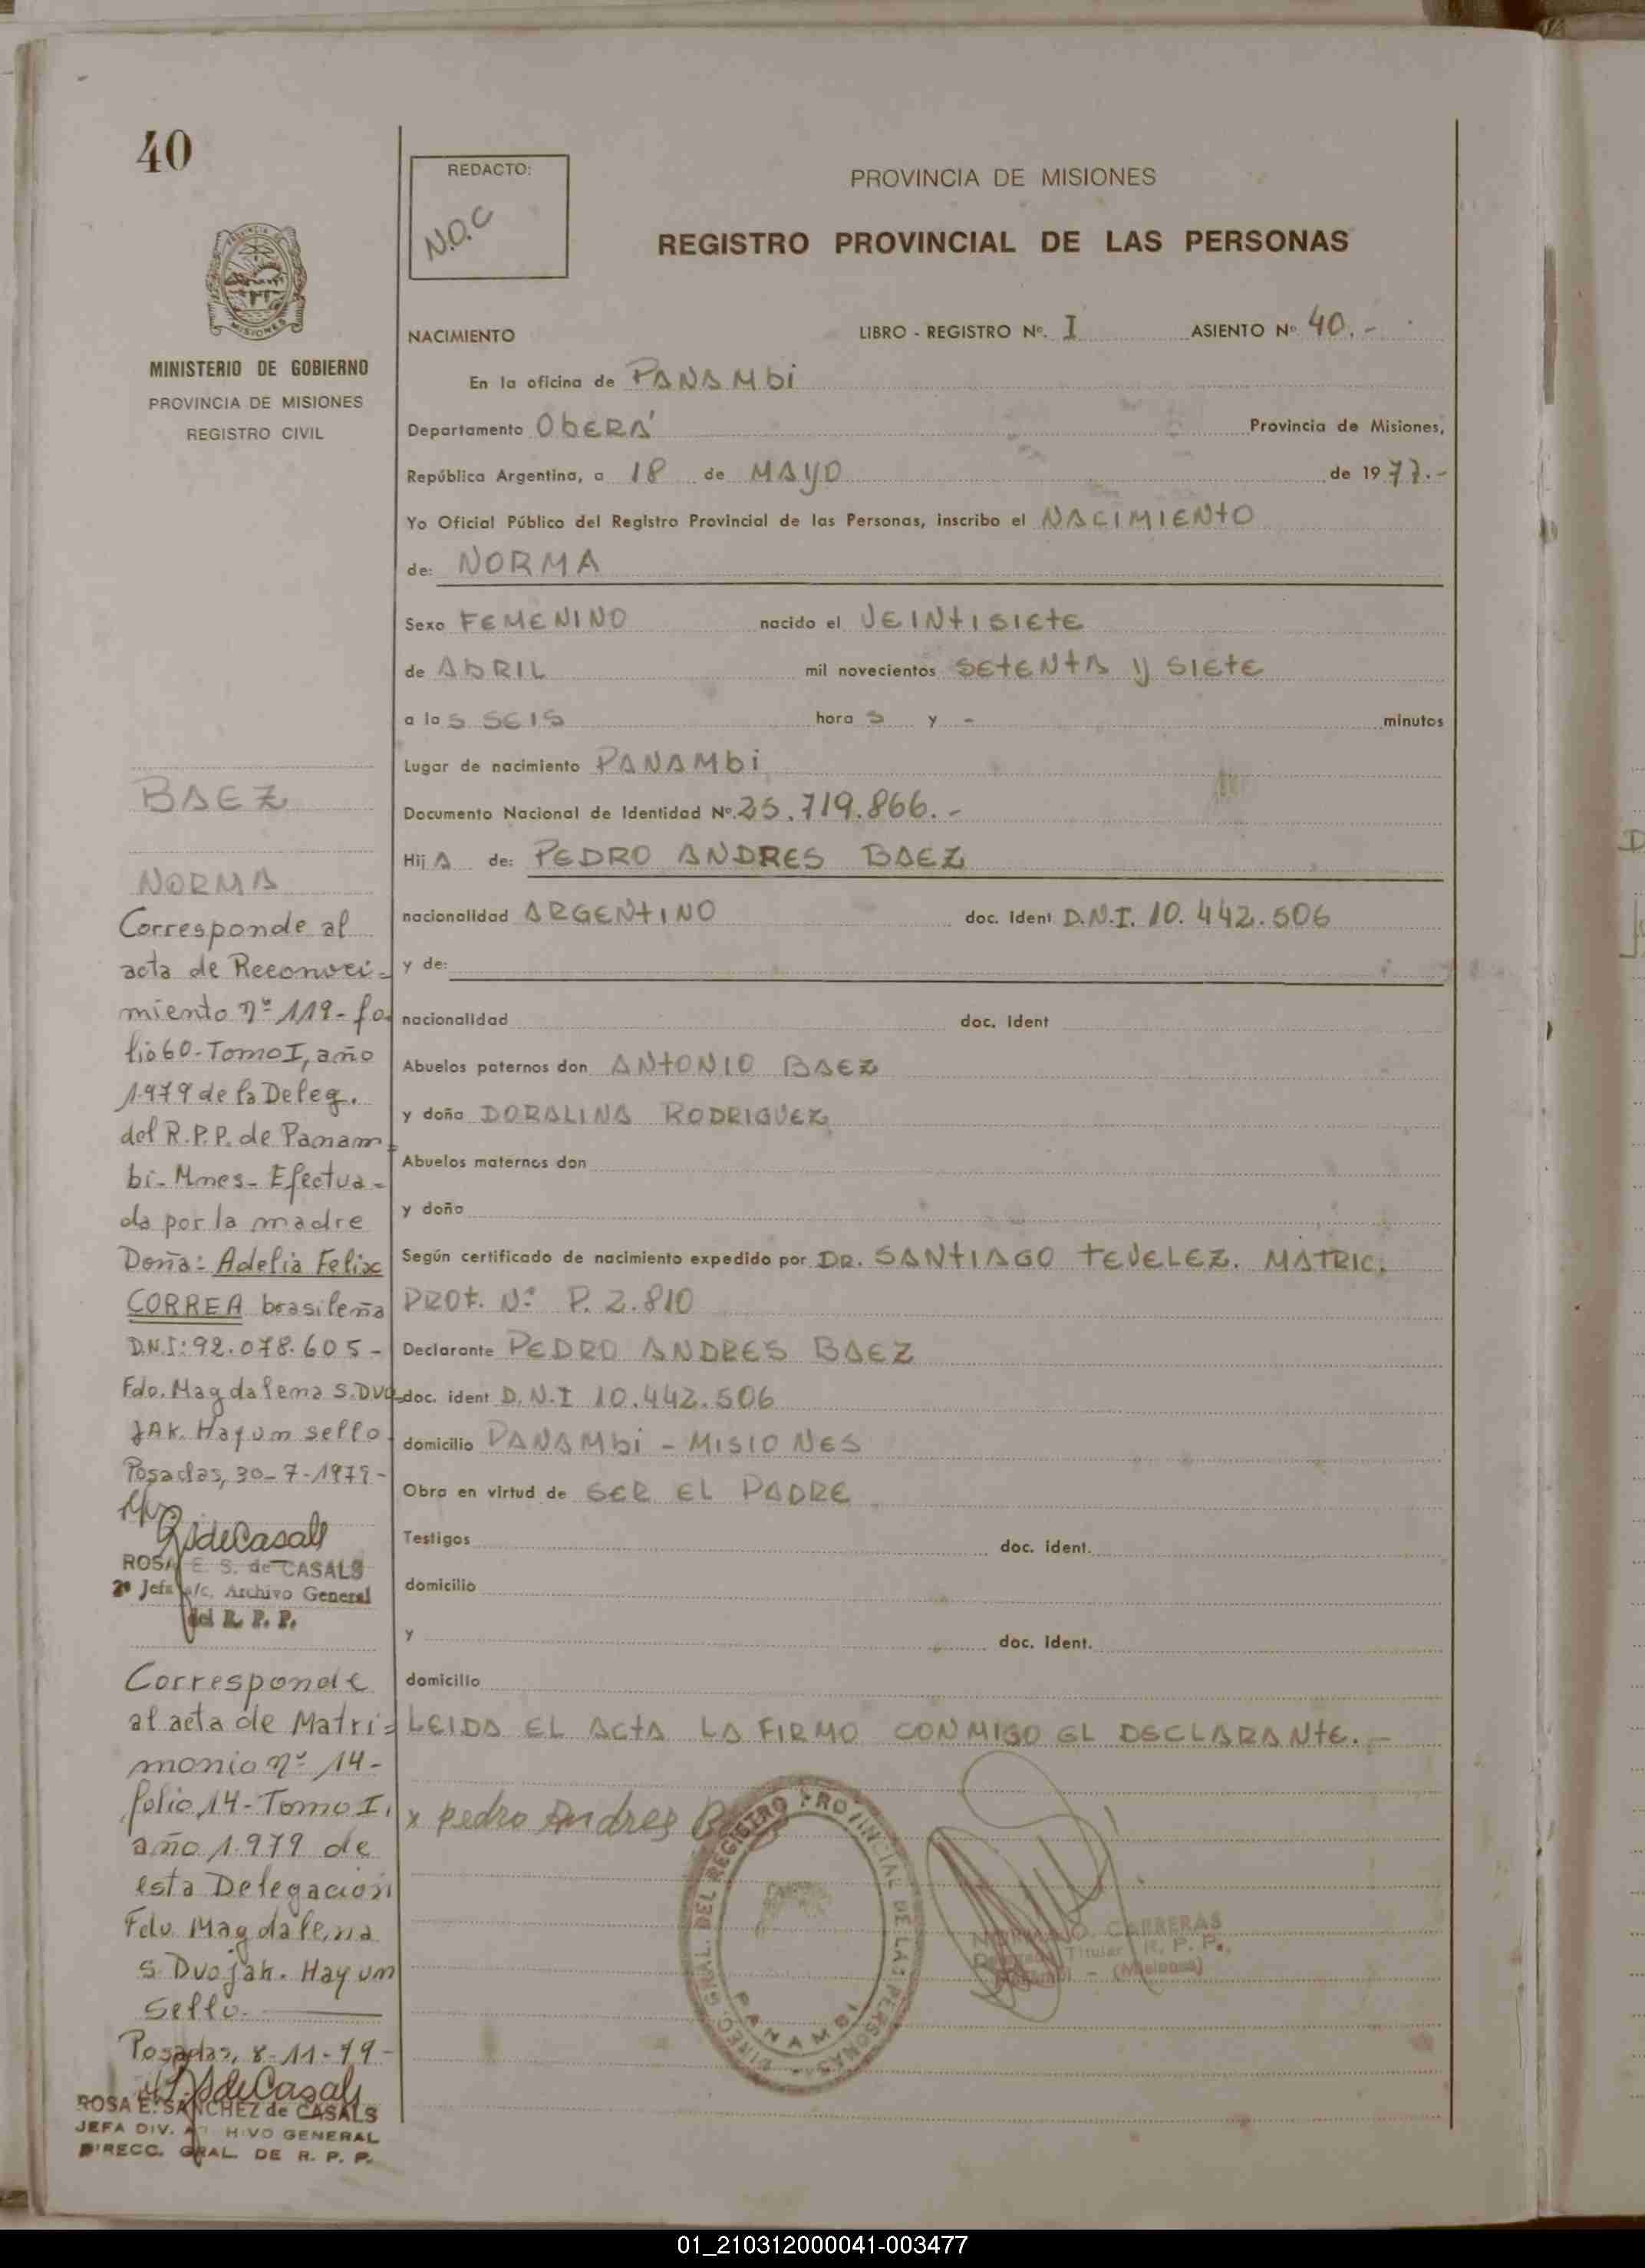 40
REDACTO:
N.O.C
PROVINCIA DE MISIONES
REGISTRO PROVINCIAL DE LAS PERSONAS
MISIONES
MINISTERIO DE GOBIERNO
PROVINCIA DE MISIONES
REGISTRO CIVIL
NACIMIENTO LIBRO - REGISTRO Nº. I ASIENTO Nº 40.-
En la oficina de PANAMbi
Departamento ObERÁ Provincia de Misiones,
República Argentina, a 18 de MAYO de 1977.-
Yo Oficial Público del Registro Provincial de las Personas, inscribo el NACIMIENtO
de: NORMA
Sexo FEMENINO nacido el VEINtISIEtE
de ABRIL mil novecientos SEtENtA y SIEtE
a las SEIS horas y - minutos
Lugar de nacimiento PANAMbi
Documento Nacional de Identidad Nº. 25.719.866.-
HijA de: PEDRO ANDRES BAEZ
nacionalidad ARGENtINO doc. Ident D.N.I. 10.442.506
y de:
nacionalidad doc. Ident
Abuelos paternos don ANtONIO BAEZ
y doña DORALINA RODRIGUEZ
Abuelos maternos don
y doña
Según certificado de nacimiento expedido por DR. SANtIAGO tEVELEZ. MAtRIC.
PROt. Nº P. 2.810
Declarante PEDRO ANDRES BAEZ
doc. ident D.N.I 10.442.506
domicilio PANAMbi - MISIONES
Obra en virtud de SER EL PADRE
Testigos doc. ident.
domicilio
y doc. ident.
domicilio
LEIDA EL ActA LA FIRMO CONMIGO EL DECLARANtE.-
x Pedro Andres
DIRECC. GRAL. DEL REGISTRO PROVINCIAL DE LAS PERSONAS
PANAMBI
O. CARRERAS
Titular R. P. P.
(Misiones)
BAEZ
NORMA
Corresponde al
acta de Reconoci-
miento nº 119- fo-
lio 60- Tomo I, año
1979 de la Deleg.
del R.P.P. de Panam-
bí- Mnes- Efectua-
da por la madre
Doña: Adelia Felix
CORREA brasileña
D.N.I: 92.078.605-
Fdo. Magdalena S. Dvo-
jAk. Hay un sello-
Posadas, 30-7-1979-
RSdeCasals
ROSA E. S. de CASALS
2º Jefa a/c. Archivo General
del R. P. P.
Corresponde
al acta de Matri-
monio nº 14-
folio 14- Tomo I,
año 1.979 de
esta Delegación
Fdo. Magdalena
S Dvojak. Hay un
Sello.
Posadas, 8-11-79-
RSdeCasals
ROSA E. SANCHEZ de CASALS
JEFA DIV. ARCHIVO GENERAL
DIRECC. GRAL. DE R. P. P.
01_210312000041-003477